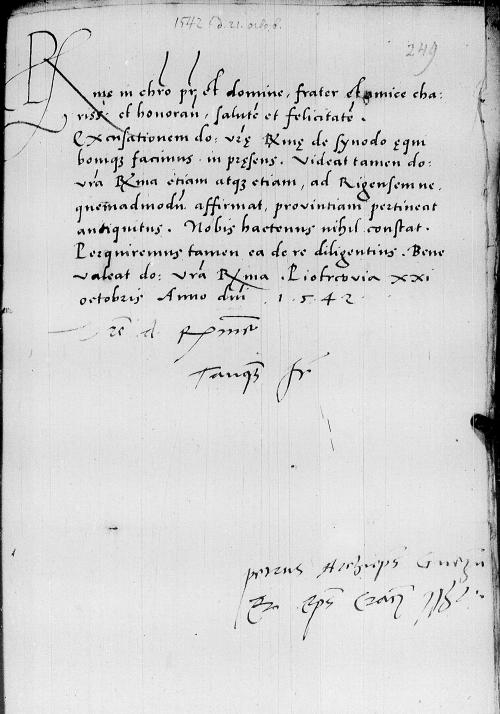 1542 d. 21. octob.
249
Rme in chro pr et domine, frater et amice cha:
riss: et honoran, salute et felicitate.
Excusationem do: vrę Rmę de synodo ęqui
bonique facimus in pręsens. Videat tamen do:
vra Rma etiam atqz etiam, ad Rigensem ne,
quemadmodu affirmat, provintiam pertineat
antiquitus. Nobis hactenus nihil constat.
Perquiremus tamen ea de re diligentius. Bene
valeat do: vra Rma. Piotrcovia XXI
octobris Anno dni 1542
Rme
Tanqz fr
Petrus Archieps Gnezn
Eps Crac